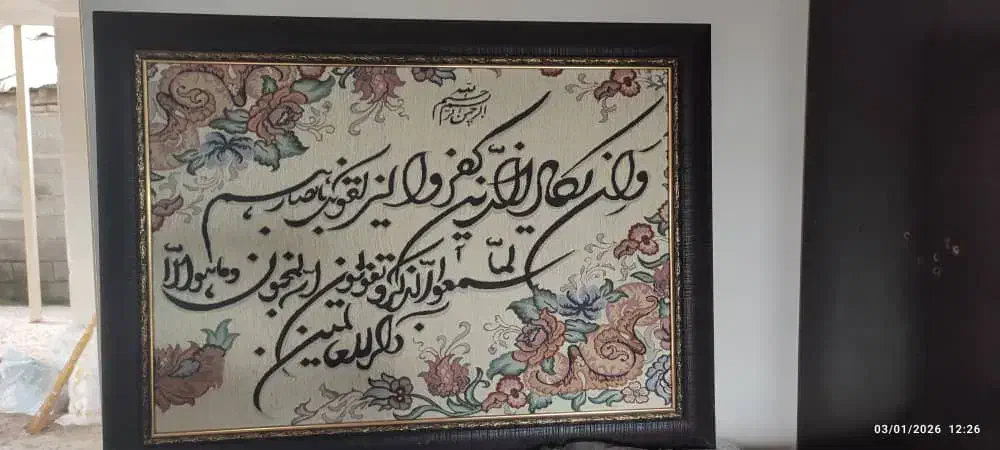 بسم الله الرحمن الرحیم
وان یکاد الذین کفروا لیزلقونک بابصارهم
لما سمعوا الذکر و یقولون انه لمجنون وما هو الا
ذکر للعالمین
03/01/2026 12:26